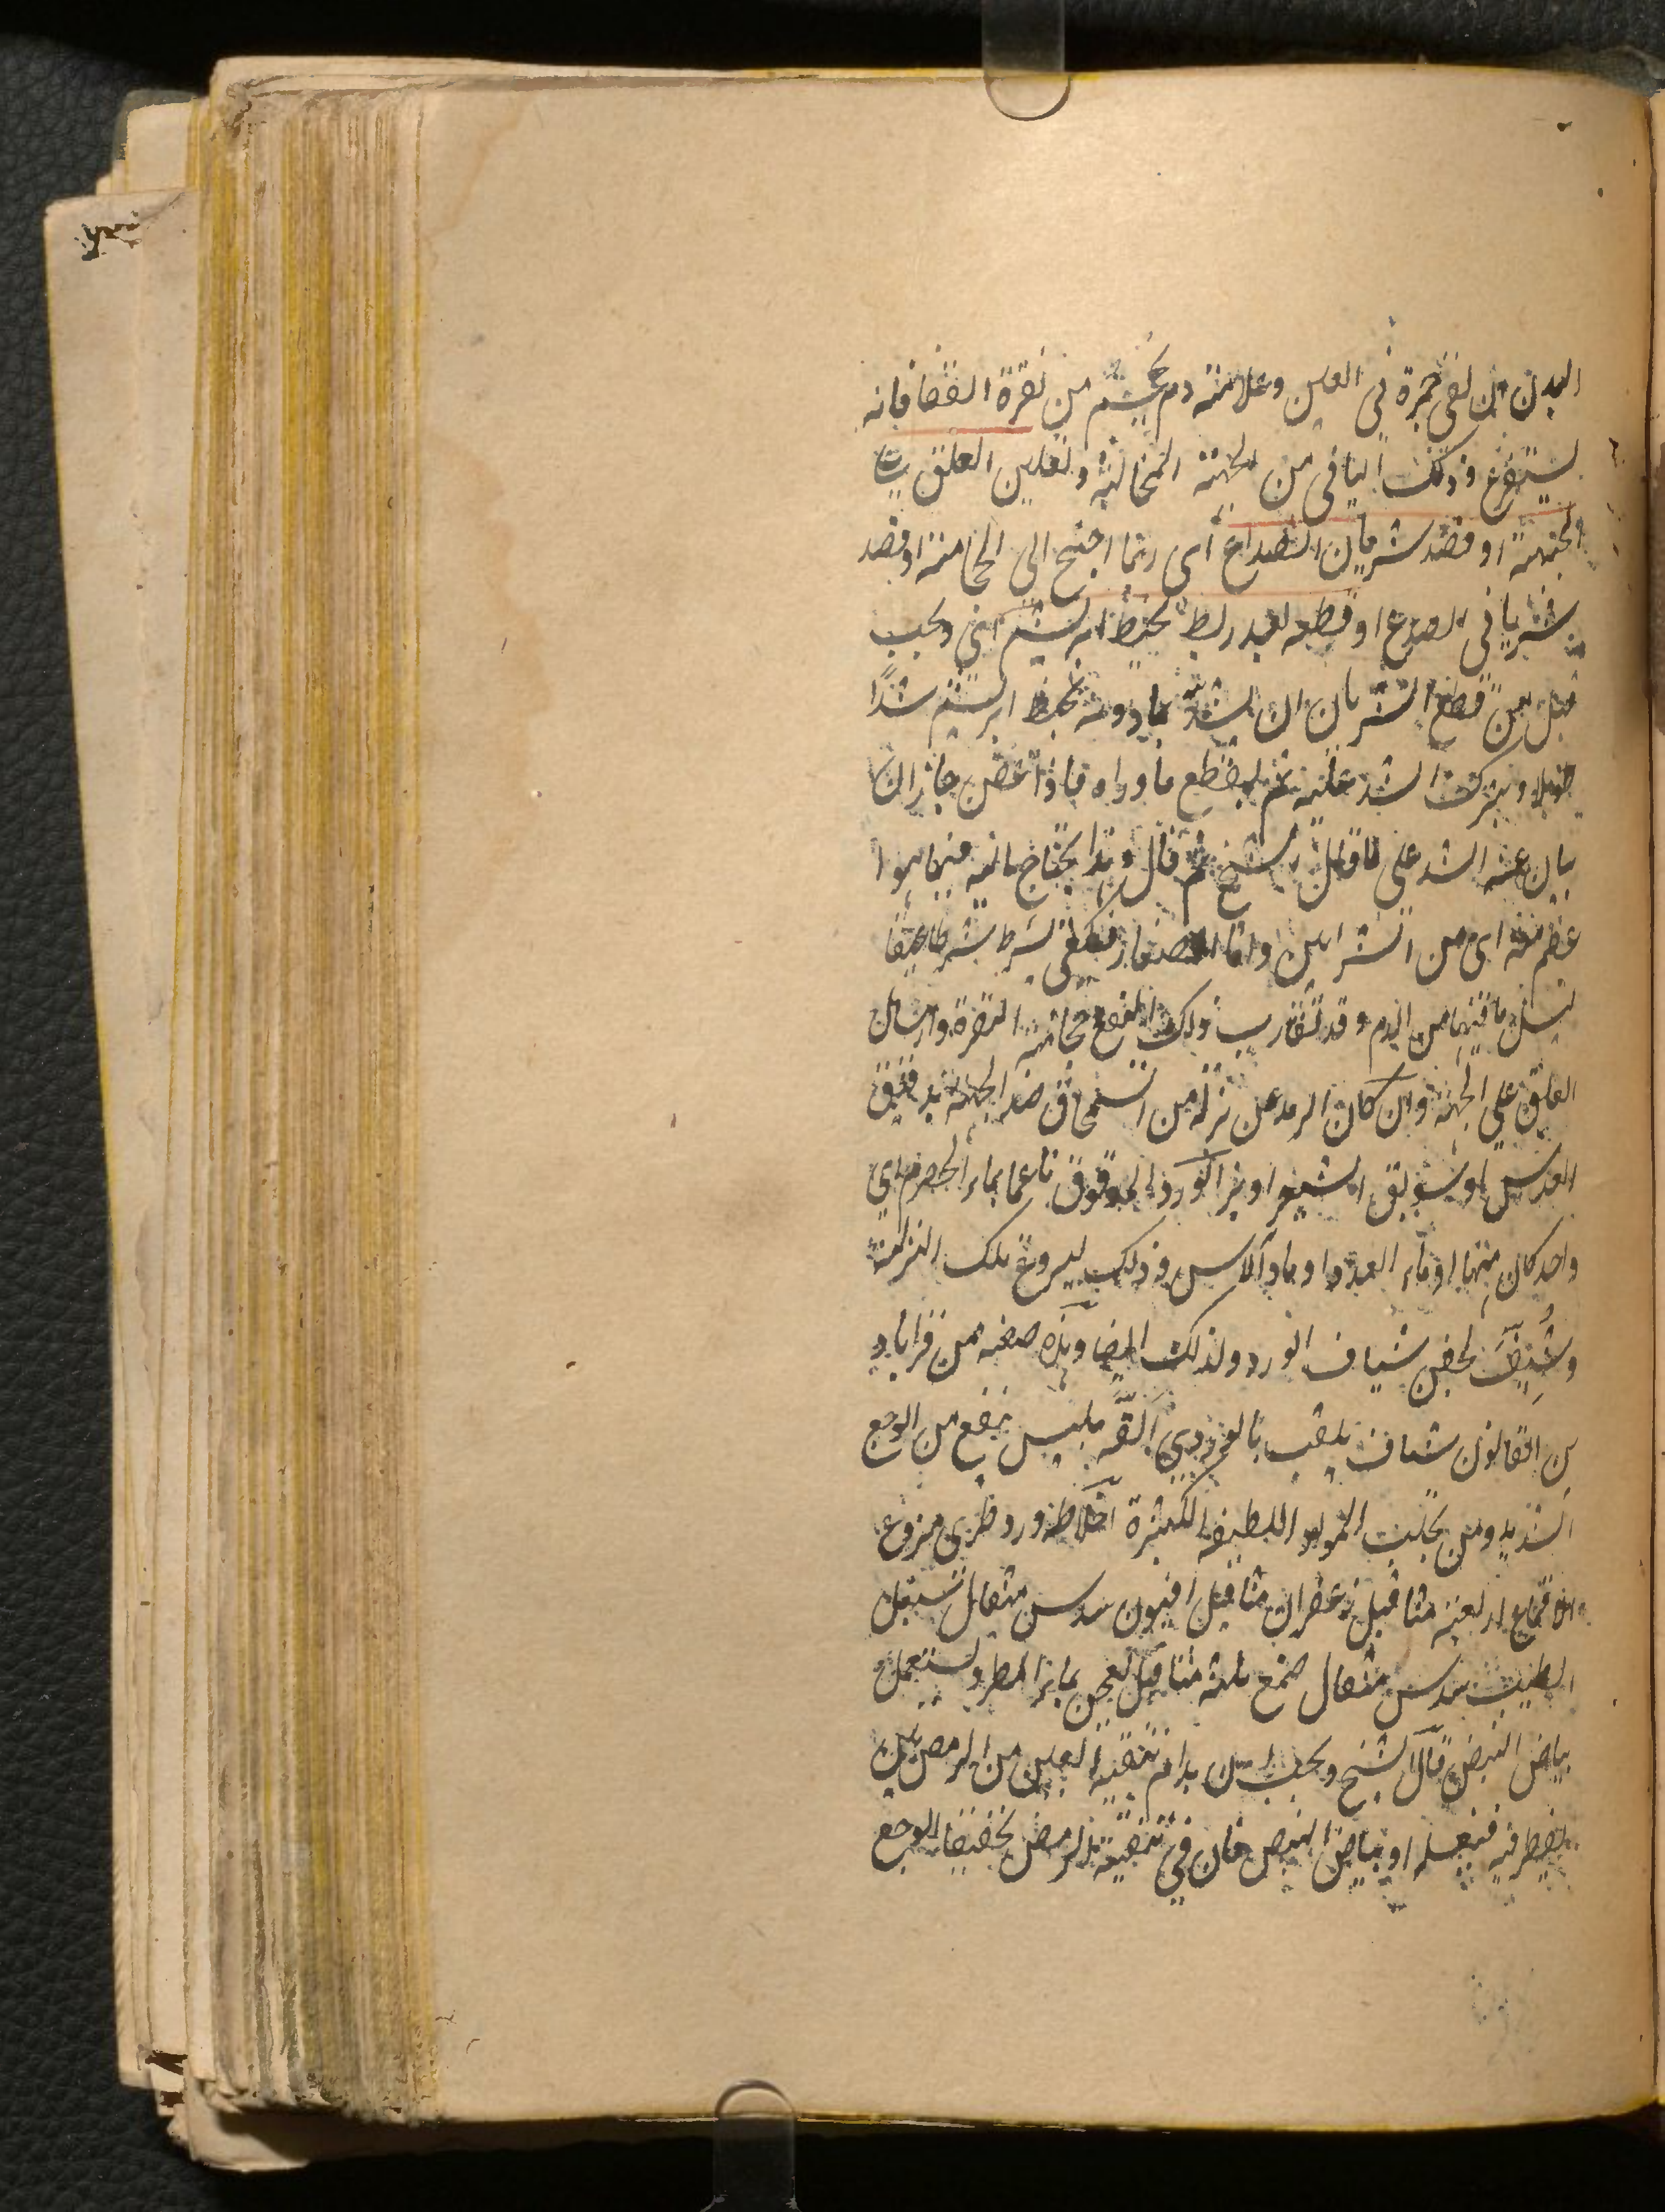 البدن من لقى حمرة فى العين وعلامته دم يحتجم من نقرة القفا فانه
يستفرغ وذلك الباقى من الجهة المخالفة وتعليق العلق على
الجبهة او فصد شريان الصداغ أى ربما احتيج الى الحجامة او فصد
شريانى الصدغ او قطعه بعد ربط بخيط ابريسم اى ويجب
قبل من قطع الشريان ان يشد مادونه بخيط ابريسم شدًا
طويلا ويترك الشد عليه ثم يقطع ماوراه فاذا عفن جاز ان
بان عنه الشد على ما قال الشيخ ثم قال وهذا يحتاج اليه فيما هوا
عظم منه اى من الشرايين واما الصغار فيكفى شرط بشرط عميقا
ليسيل ما فيها من الدم وقد يقارب ذلك النفع حجامة النقرة وارسال
العلق على الجبهة وان كان الرمد عن نزلة من السمحاق ضمد الجبهة بدقيق
العدس او سويق الشعير او بزر الورد المدقوق ناعما بماء الحصرم اى
واحد كان منها او ماء الهندبا او ماء الآس وذلك ليردع تلك النزلة
وشيف لجفن شياف الورد ولذلك ايضا وهذه صفته من قراباد
ين القانون شياف يلقب بالوردى الفه مليس ينفع من الوجع
الشديد ومن تجلب المواد اللطيفة الكثيرة اخلاطه ورد طرى منزوع
الاقماع اربعة مثاقيل زعفران مثاقيل افيون سدس مثقال سنبل
الطيب سدس مثقال صمغ ثلثة مثاقيل يعجن بماء المطر ويستعمل
بياض البيض قال الشيخ ويجب ان يدام تنقية العين من الرمص بلبن
يقطر فيه فيغسله او بياض البيض فان فى تنقية الرمص تخفيفا للوجع